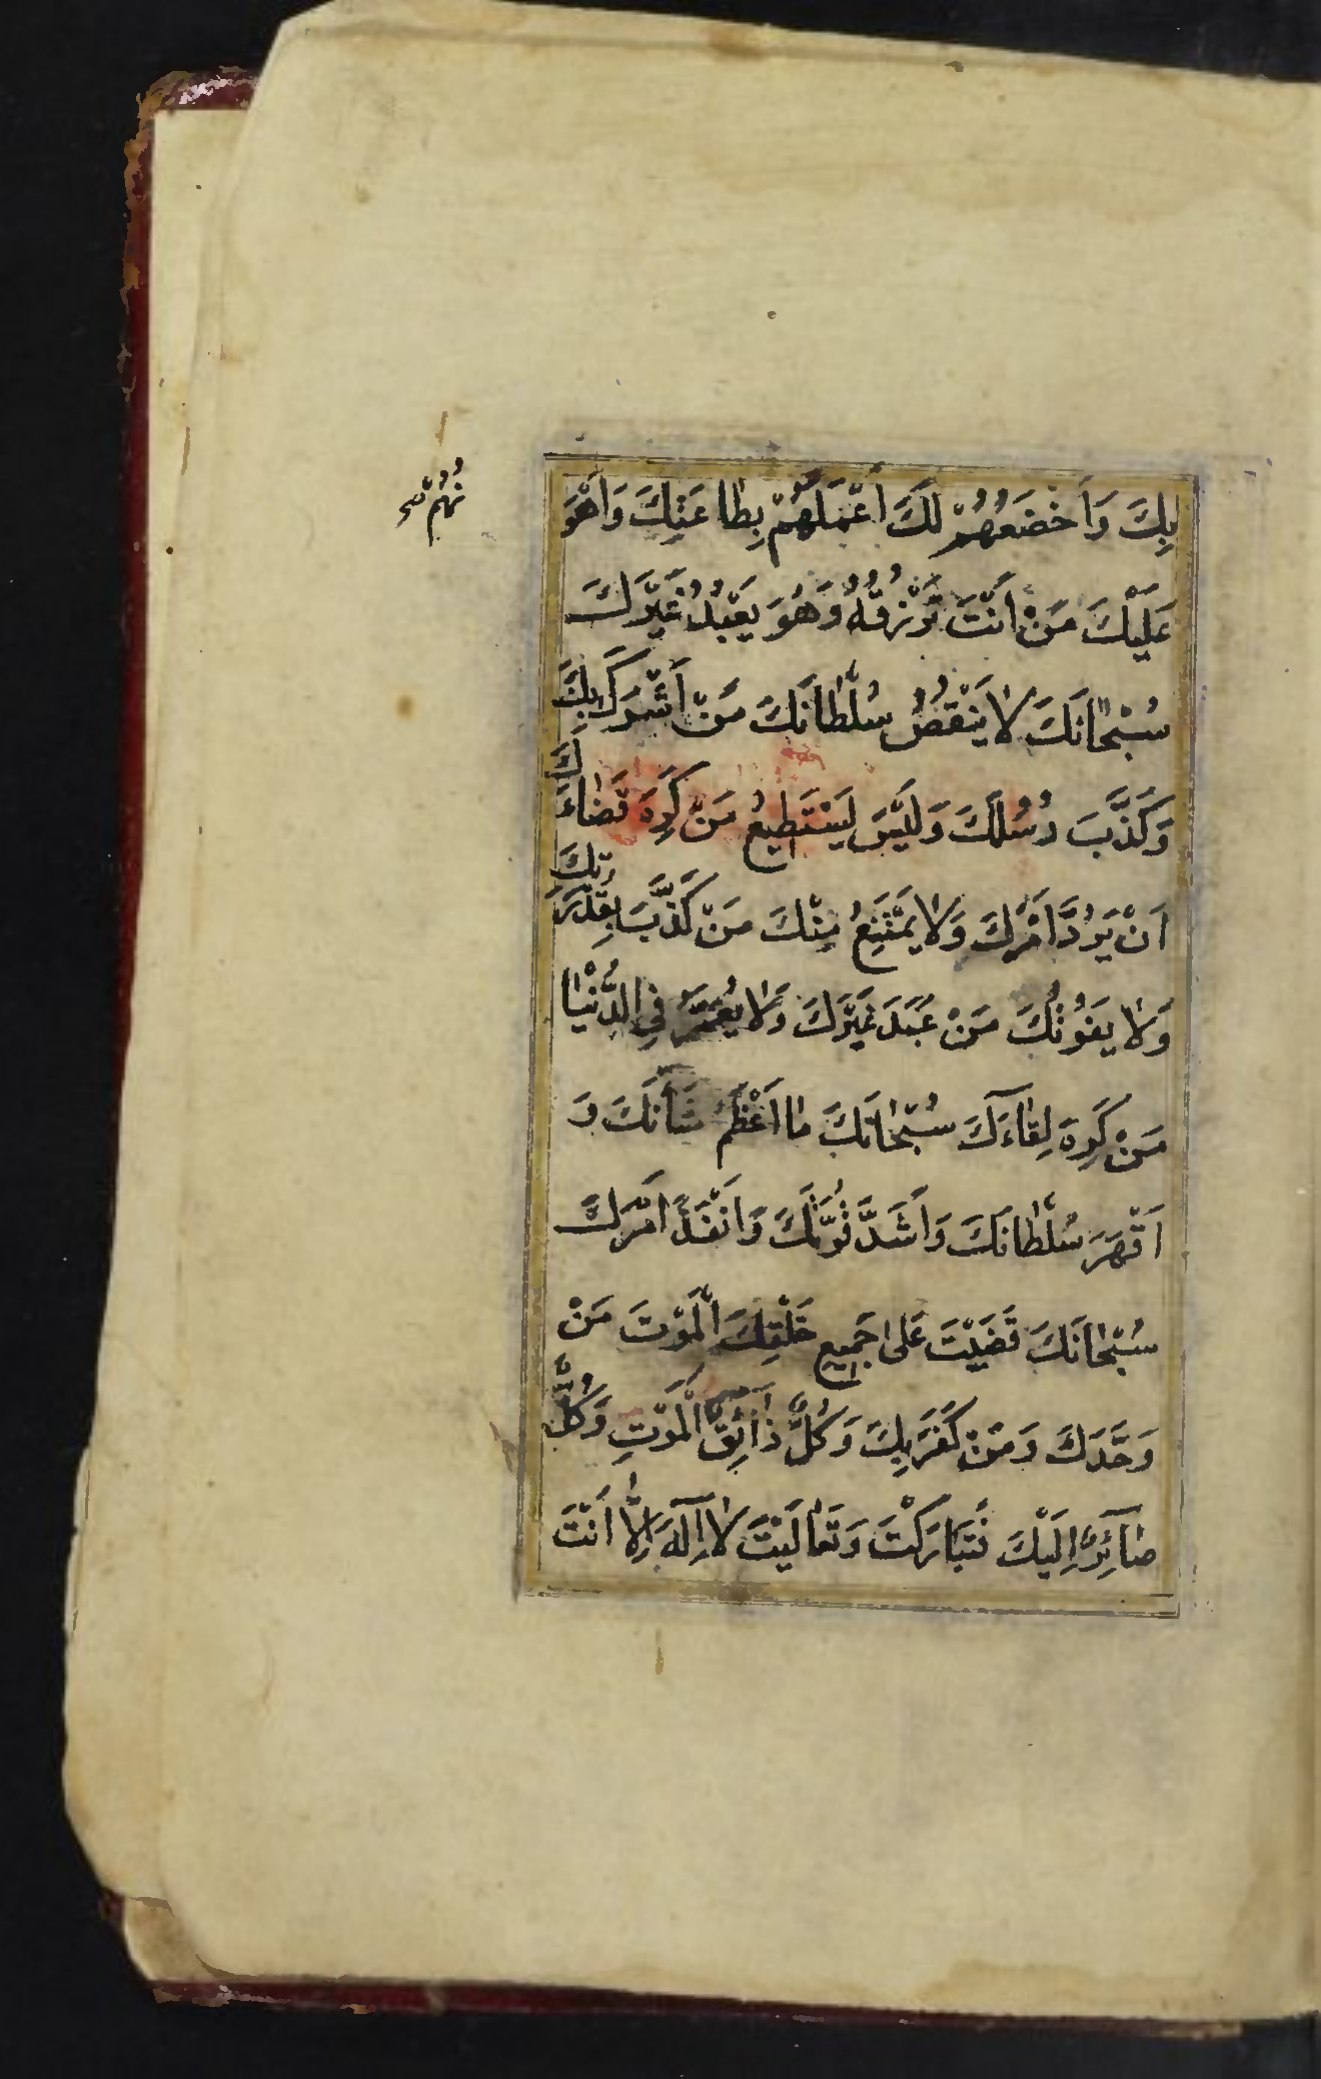 بِكَ وَاَخْضَعُهُمْ لَكَ أَعْمَلُهُمْ بِطٰاعَتِكَ وَاَهْوَ
نُهُمْ
عَلَيْكَ مَنْ اَنْتَ تَرْزُقُهُ وَهُوَ يَعْبُدُ غَيْرَكَ
سُبْحٰانَكَ لٰا يَنْقُصُ سُلْطٰانَكَ مَنْ اَشْرَكَ بِكَ
وَكَذَّبَ رُسُلَكَ وَلَيْسَ يَسْتَطِيعُ مَنْ كَرِهَ قَضٰاءَكَ
اَنْ يَرُدَّ اَمْرَكَ وَلٰا يَمْتَنِعُ مِنْكَ مَنْ كَذَّبَ بِقُدْرَتِكَ
وَلٰا يَفُوتُكَ مَنْ عَبَدَ غَيْرَكَ وَلٰا يُعَمَّرُ فِي الدُّنْيٰا
مَنْ كَرِهَ لِقٰاءَكَ سُبْحٰانَكَ مٰا اَعْظَمَ شَأْنَكَ وَ
اَقْهَرَ سُلْطٰانَكَ وَاَشَدَّ قُوَّتَكَ وَاَنْفَذَ اَمْرَكَ
سُبْحٰانَكَ قَضَيْتَ عَلىٰ جَمِيعِ خَلْقِكَ الْمَوْتَ مَنْ
وَحَّدَكَ وَمَنْ كَفَرَ بِكَ وَكُلٌّ ذٰائِقُ الْمَوْتِ وَكُلٌّ
صٰآئِرٌ اِلَيْكَ فَتَبٰارَكْتَ وَتَعٰالَيْتَ لٰا اِلٰهَ اِلّٰا اَنْتَ